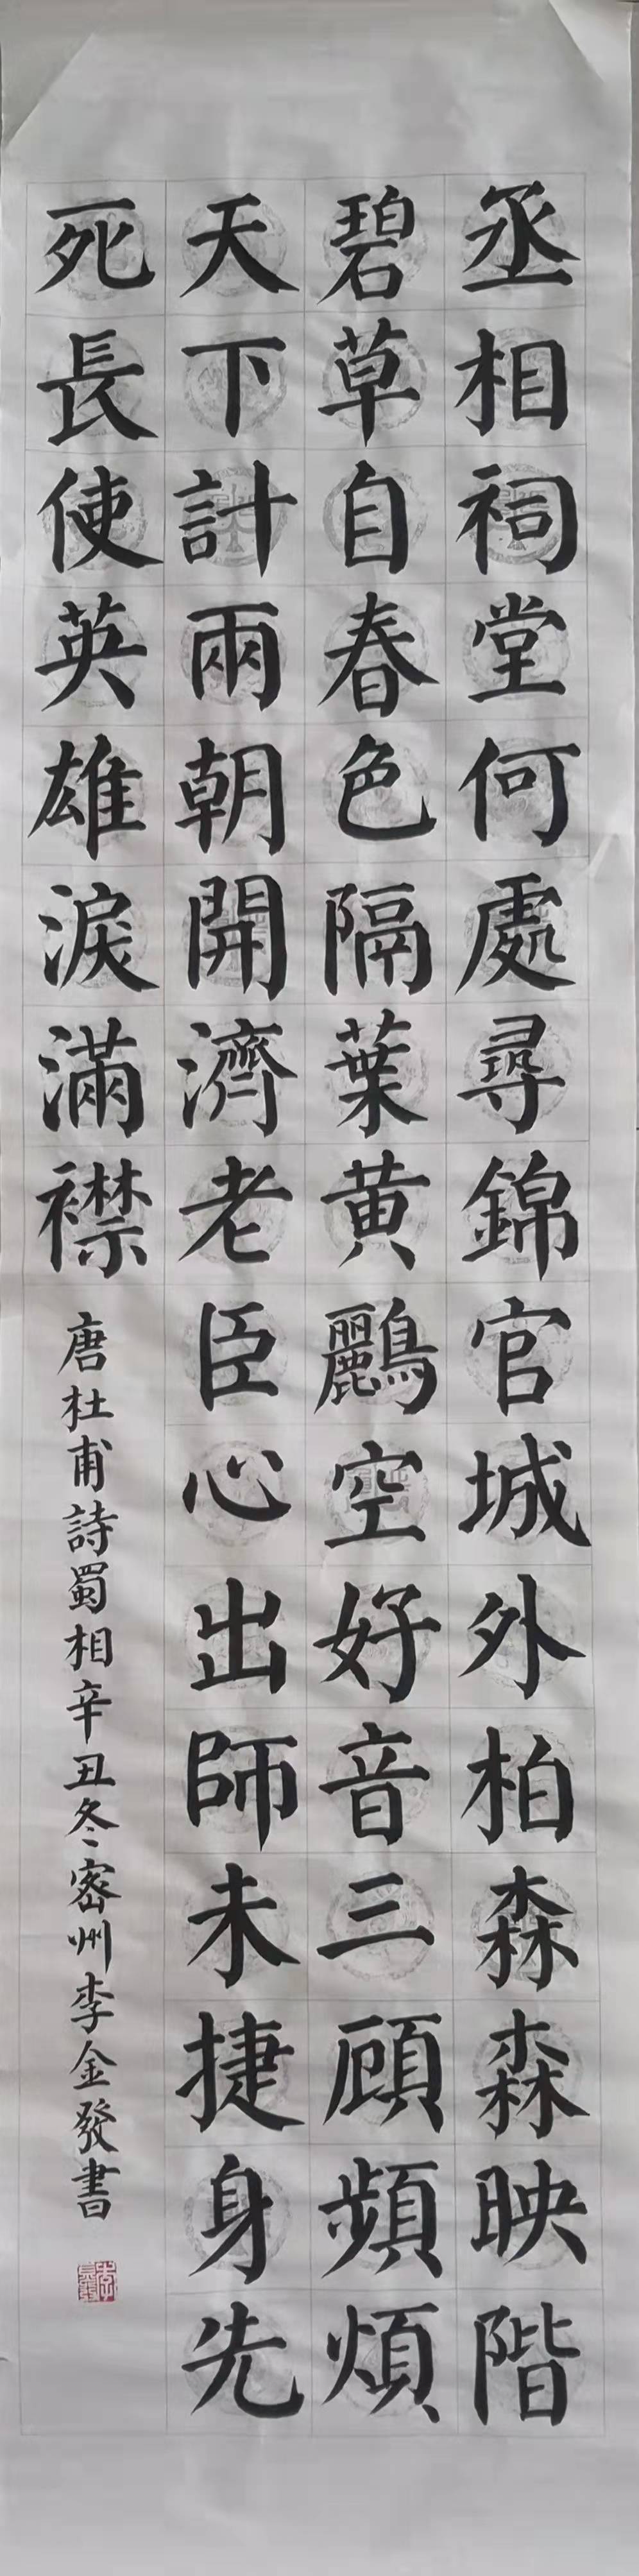 丞相祠堂何處尋錦官城外柏森森映階
碧草自春色隔葉黄鸝空好音三顧頻煩
天下計兩朝開濟老臣心出師未捷身先
死長使英雄淚滿襟
唐杜甫詩蜀相辛丑冬密州李金發書